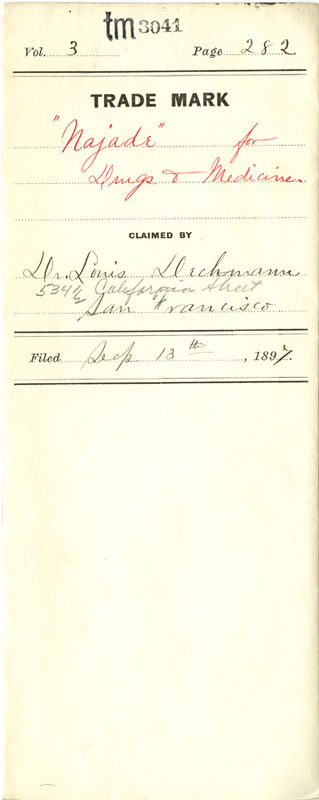 tm 3041
Vol. 3 Page 282
TRADE MARK
"Najade" for
Drugs & Medicine.
CLAIMED BY
Dr. Louis Dechmann
534½ California Street
San Francisco
Filed Sep 13th, 1897.